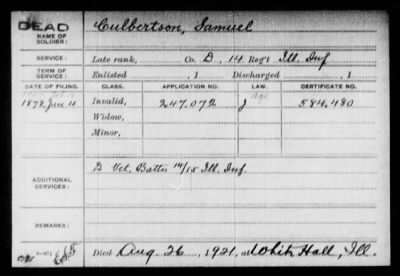 DEAD
NAME OF SOLDIER: Culbertson, Samuel
SERVICE: Late rank, Co. D, 14 Reg't Ill. Inf
TERM OF SERVICE: Enlisted , 1 Discharged , 1
DATE OF FILING. CLASS. APPLICATION NO. LAW. CERTIFICATE NO.
1879, Jan. 4 Invalid, 247.072 J 584.480
Widow,
Minor,
ADDITIONAL SERVICES: D Vet. Battn 14/15 Ill. Inf.
REMARKS:
Died Aug. 26, 1921, at White Hall, Ill.